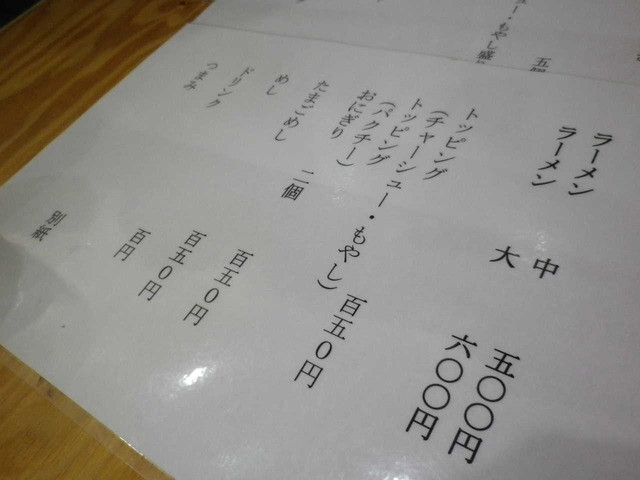 ー・もやし盛
ラーメン 中 五〇〇円
ラーメン 大 六〇〇円
トッピング
(チャーシュー・もやし) 百五〇円
トッピング
(パクチー)
おにぎり 二個 百五〇円
たまごめし 百五〇円
めし 百円
ドリンク
つまみ 別紙